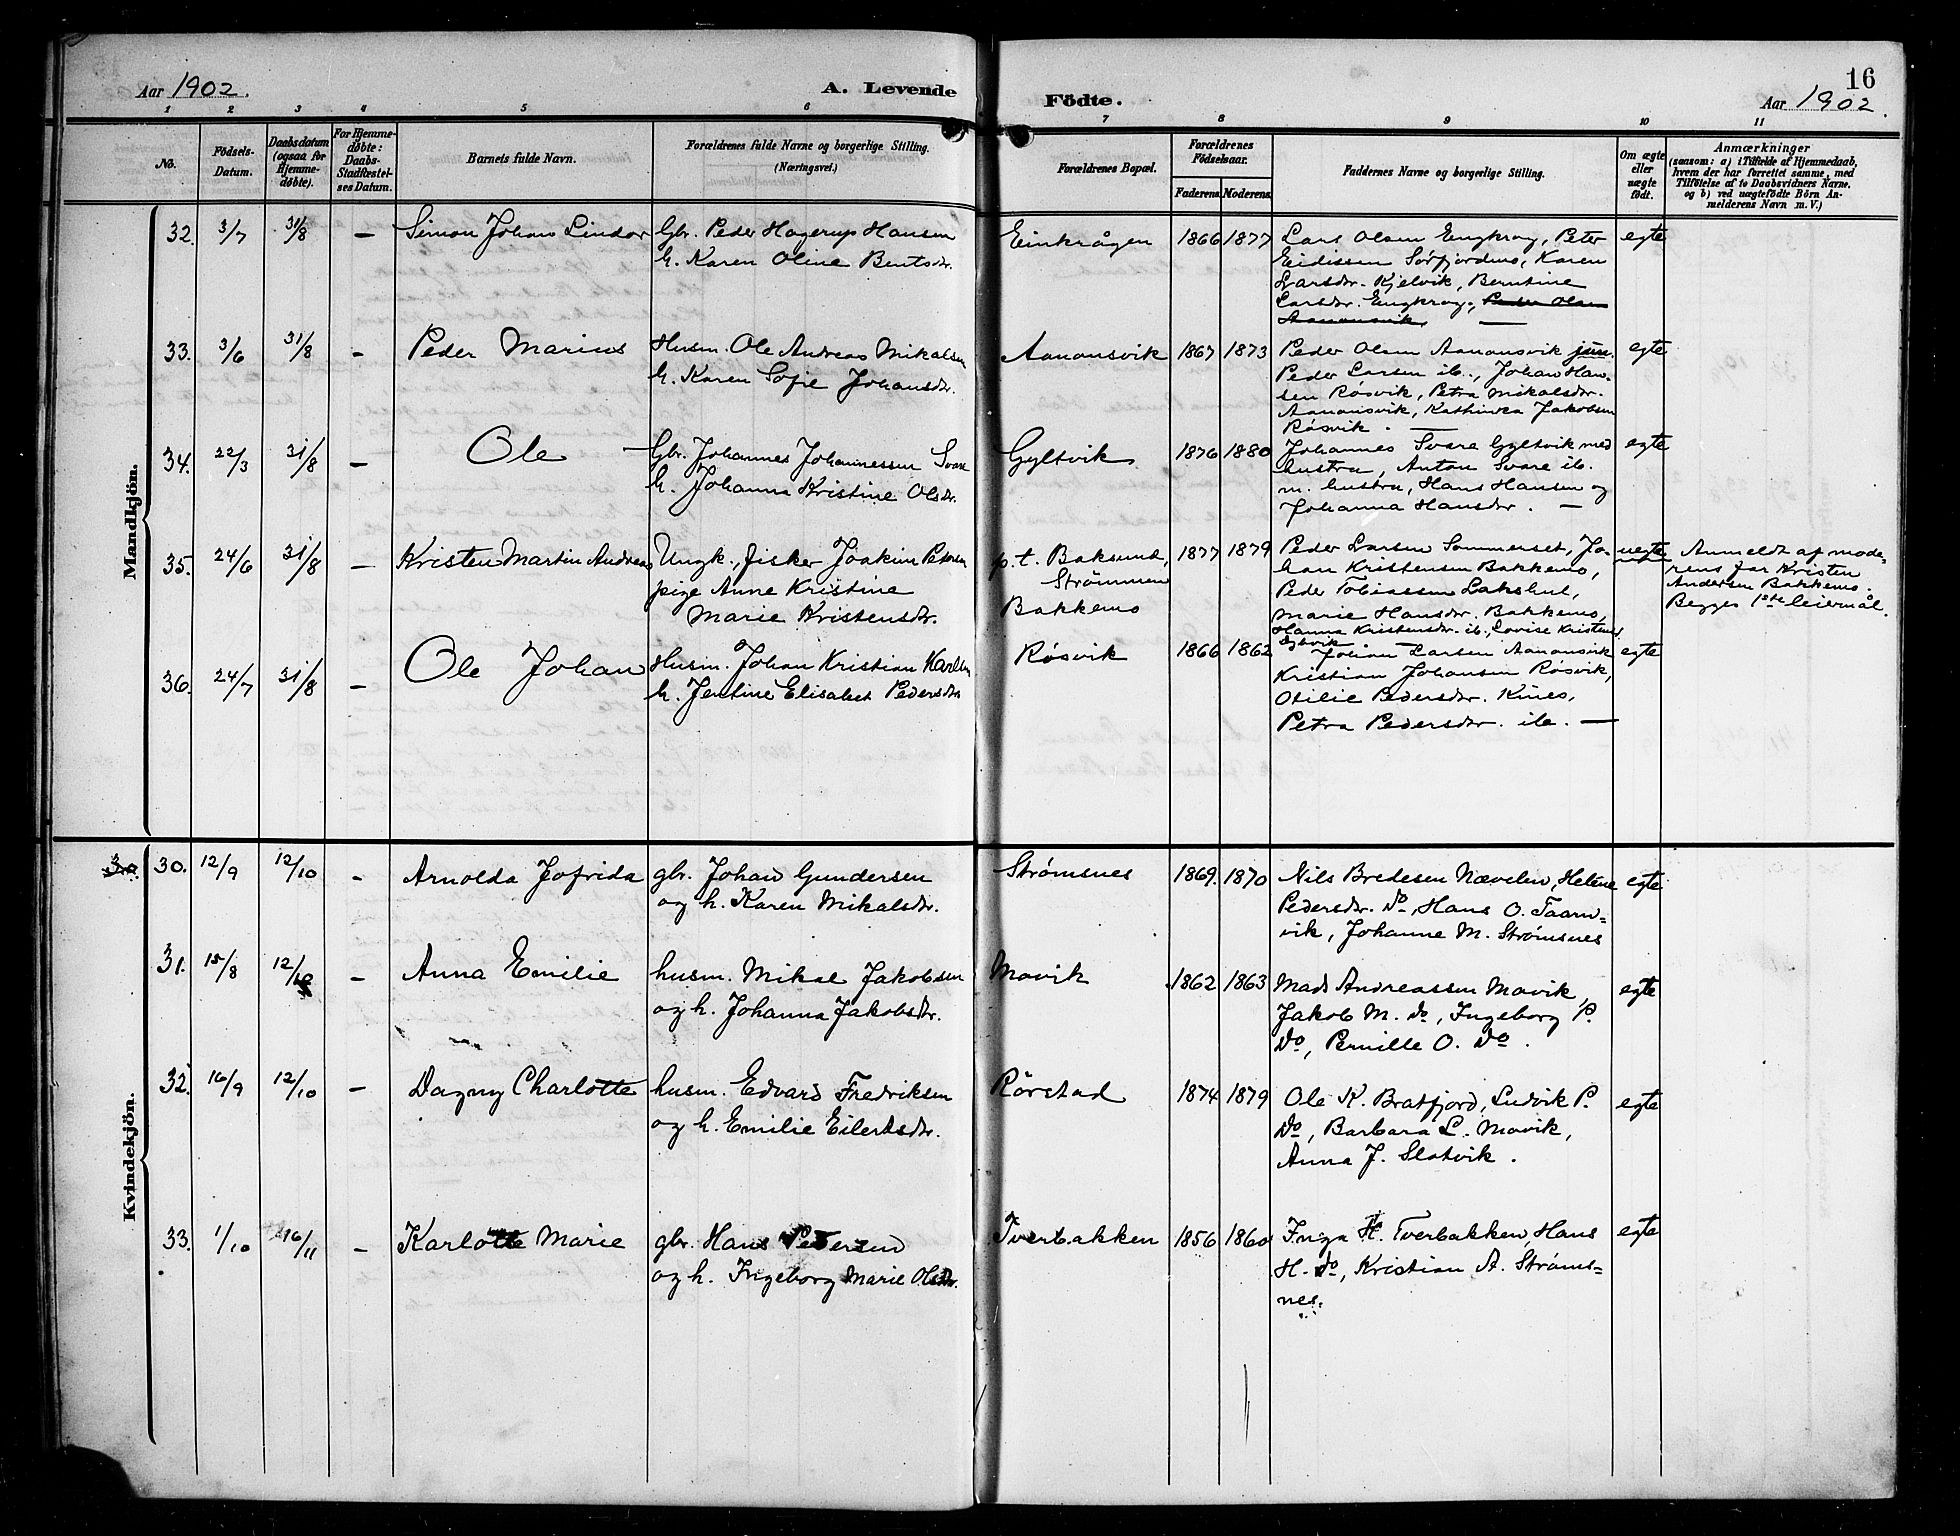 16
Aar 1902.
A. Levende
Födte.
Aar 1902.
1 2 3 4 5 6 7 8 9 10 11
No.
Födsels-
Datum.
Daabsdatum
(ogsaa for
Hjemme-
døbte).
For Hjemme-
døbte:
Daabs-
Stadfæstel-
ses Datum.
Barnets fulde Navn.
Forældrenes fulde Navne og borgerlige Stilling.
(Næringsvei.)
Forældrenes Bopæl.
Forældrenes
Födselsaar.
Faderens. Moderens.
Faddernes Navne og borgerlige Stilling.
Om ægte
eller
uægte
födt.
Anmærkninger
(saasom: a) i Tilfælde af Hjemmedaab,
hvem der har forrettet samme, med
Tilföielse af to Daabsvidners Navne.
og b) ved uægtefödte Börn An-
melderens Navn m. V.)
Mandkjön.
32. 3/7 31/8 — Simon Johans Lindor
Gbr. Peder Hagerup Hansen
h. Karen Oline Bentsdr.
Einkrågen 1866 1877
Lars Olsen Engkrog, Peter
Eidissen Sørfjordmo, Karen
Larsdr. Kjelvik, Berntine
Larsdr. Engkrog, Peder Olsen
Aanonsvik —
egte
33. 3/6 31/8 - Peder Marius
Husm. Ole Andreas Mikalsen
h. Karen Sofie Johansdr.
Aanonsvik 1867 1873
Peder Olsen Aanonsvik jun.
Peder Larsen ib., Johan Han-
sen Røsvik, Petra Mikalsdr.
Aanonsvik, Kathinka Jakobsen
Røsvik. —
egte
34. 22/3 31/8 — Ole —
Gbr. Johannes Johannessen Svare
h. Johanna Kristine Olsdr.
Gyltvik 1876 1880
Johannes Svare Gyltvik med
hustru, Anton Svare ib.
m. hustru, Hans Hansen og
Johanna Hansdr. —
egte
35. 24/6 31/8 — Kristen Martin Andreas
Ungk., fisker Joakim Petersen
pige Anne Kristine
Marie Kristensdr.
p.t. Baksund,
Strømmen
Bakkemo
1877 1879
Peder Larsen Sommerset, Jo-
han Kristensen Bakkemo,
Peder Tobiassen Lakshul,
Marie Hansdr. Bakkemo,
Hanna Kristensdr. ib., Lovise Kristens.
uegte
Anmeldt af mode-
rens far Kristen
Andersen Bakkemo.
Begges 1ste leiermål.
36. 24/7 31/8 — Ole Johan
Husm. Johan Kristian Karlsen
h. Jentine Elisabet Pedersdr
Røsvik 1866 1862
Johan Larsen Aanonsvik
Kristian Johansen Røsvik,
Otilie Pedersdr. Kines,
Petra Pedersdr. ib. —
egte
Kvindekjön.
30. 30. 12/9 12/10 - Arnolda Jofrida
gbr. Johan Gundersen
og h. Karen Mikalsdr.
Strømsnes 1869. 1870
Nils Bredesen Nævelen, Helene
Pedersdr. do, Hans O. Taarn=
vik, Johanne M. Strømsnes
egte
31. 15/8 12/10 - Anna Emilie
husm. Mikal Jakobsen
og h. Johanna Jakobsdr.
Movik 1862 1863
Mads Andreassen Movik,
Jakob M. do, Ingeborg P.
do, Pernille O. do.
egte
32. 16/9 12/10 — Dagny Charlotte
husm. Edvard Fredriksen
og h. Emilie Eilertsdr.
Rørstad 1874 1879
Ole K. Bratfjord, Ludvik P.
do, Barbara L. Movik,
Anna J. Slotvik.
egte
33. 1/10 16/11 - Karlotte Marie
gbr. Hans Pedersen
og h. Ingeborg Marie Olsdr.
Tverbakken 1856 1860
Inga H. Tverbakken, Hans
H. do, Kristian A. Strøms=
nes.
egte